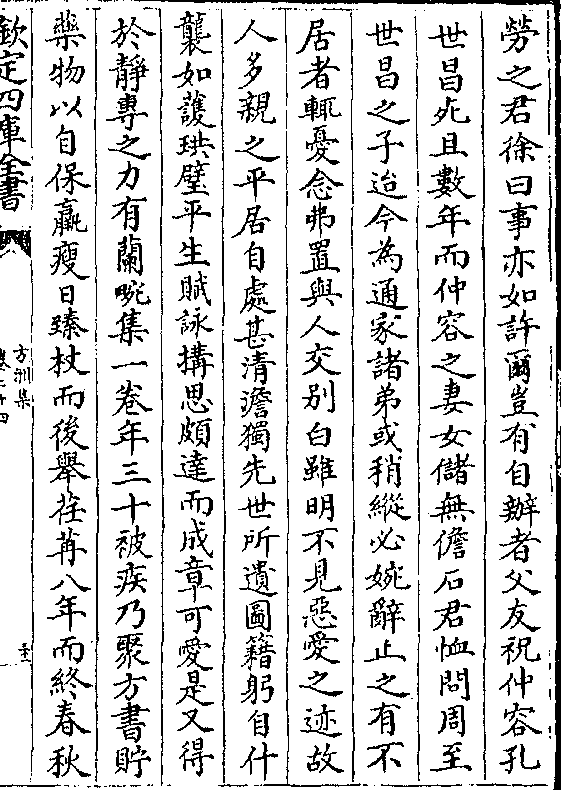 勞之君徐曰事亦如許爾豈有自辦者父友祝仲容孔
世昌死且數年而仲容之妻女儲無儋石君恤問周至
世昌之子迨今為通家諸弟或稍縱必婉辭止之有不
居者輒憂念弗置與人交別白雖明不見惡愛之迹故
人多親之平居自處甚清澹獨先世所遺圖籍躬自什
襲如護珙璧平生賦詠搆思頗達而成章可愛是又得
於靜專之力有蘭畹集一卷年三十被疾乃聚方書貯
藥物以自保羸瘦日臻杖而後舉荏苒八年而終春秋
欽定四庫全書
方洲集
卷二十四